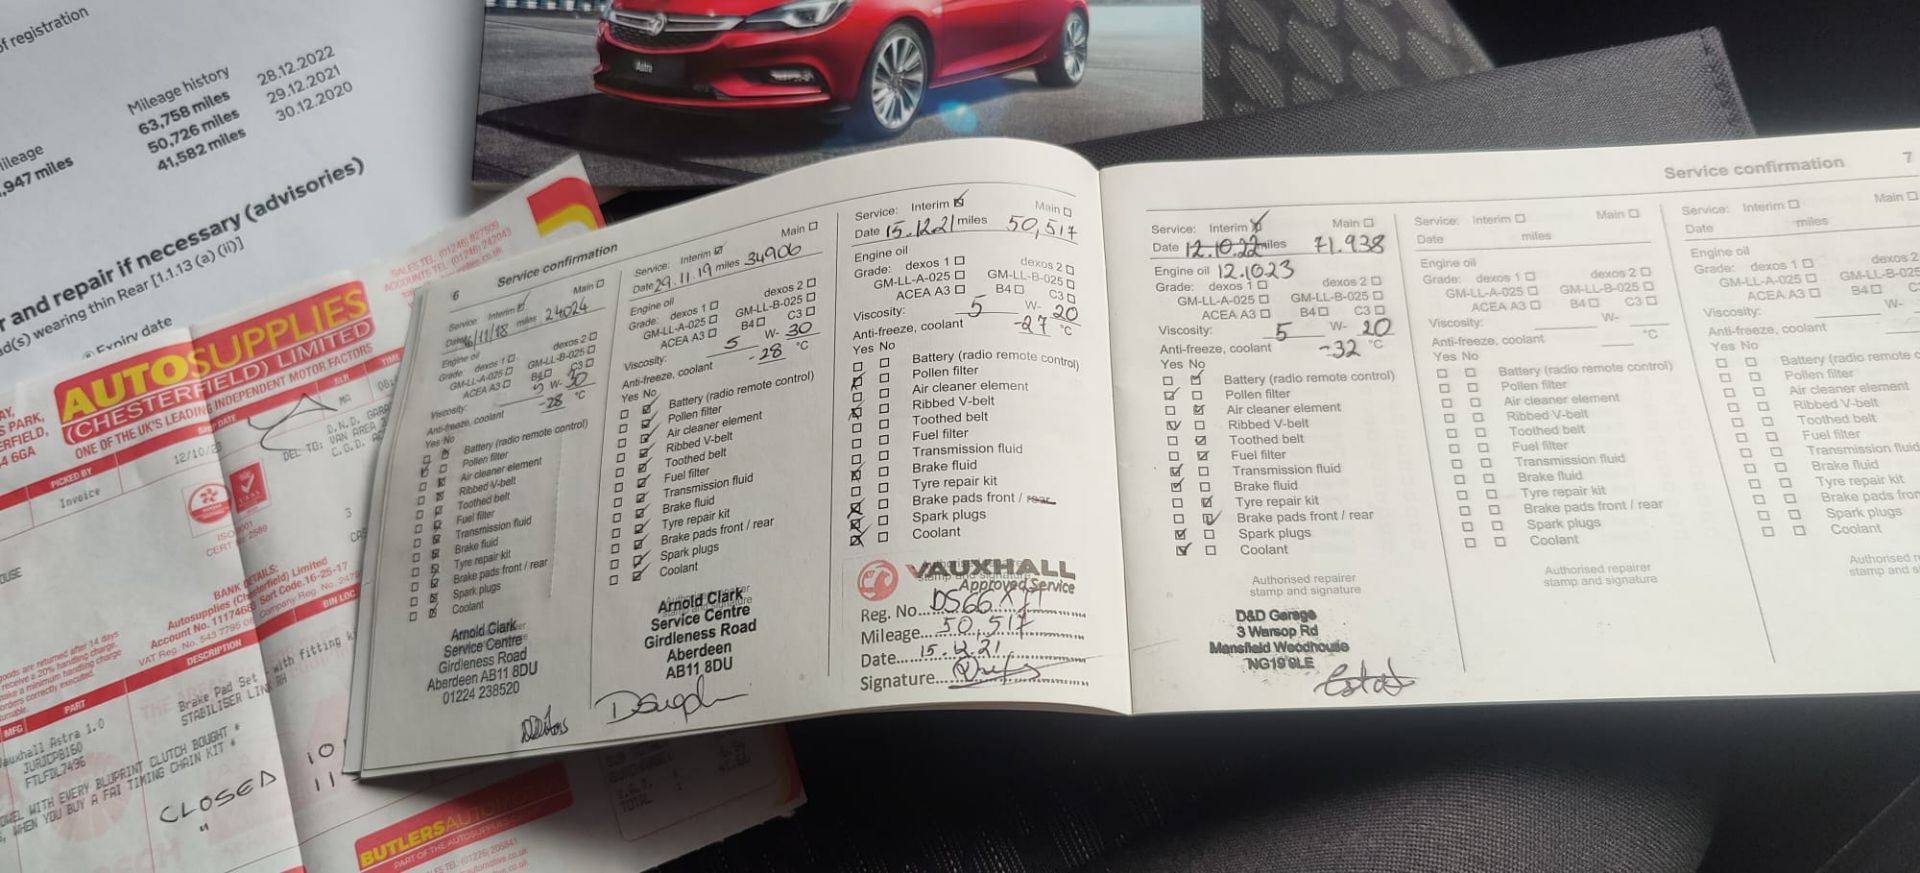 of registration
Mileage history
63,758 miles 28.12.2022
50,726 miles 29.12.2021
41,582 miles 30.12.2020
ileage
,947 miles
r and repair if necessary (advisories)
d(s) wearing thin Rear [1.1.13 (a) (ii)]
Expiry date
Astra
AUTOSUPPLIES
(CHESTERFIELD) LIMITED
ONE OF THE UK'S LEADING INDEPENDENT MOTOR FACTORS
SALES TEL: (01246) 827509
ACCOUNTS TEL: (01246) 242043
S PARK,
ERFIELD,
4 6GA
PICKED BY
12/10/23
Invoice
DEL TO:
BANK DETAILS:
Autosupplies (Chesterfield) Limited
Sort Code. 16-25-17
DESCRIPTION
BIN LOC
MFG
PART
Brake Pad Set
with fitting
STABILISER LINK RH
Vauxhall Astra 1.0
JURJCPB160
FTLFDL7496
WITH EVERY BLUPRINT CLUTCH BOUGHT *
WHEN YOU BUY A FAI TIMING CHAIN KIT *
CLOSED
BUTLERS
PART OF THE AUTOSUPPLIES
TEL: (01226) 205841
TOTAL
6 Service confirmation
Service: Interim Main
miles 24024
Engine oil
Grade: dexos 1 dexos 2
GM-LL-A-025 GM-LL-B-025
ACEA A3 B4 C3
Viscosity: 5 W- 30
Anti-freeze, coolant -28 °C
Yes No
Battery (radio remote control)
Pollen filter
Air cleaner element
Ribbed V-belt
Toothed belt
Fuel filter
Transmission fluid
Brake fluid
Tyre repair kit
Brake pads front / rear
Spark plugs
Coolant
Arnold Clark
Service Centre
Girdleness Road
Aberdeen AB11 8DU
01224 238520
Service: Interim Main
Date 29.11.19 miles 34906
Engine oil
Grade: dexos 1 dexos 2
GM-LL-A-025 GM-LL-B-025
ACEA A3 B4 C3
Viscosity: 5 W- 30
Anti-freeze, coolant -28 °C
Yes No
Battery (radio remote control)
Pollen filter
Air cleaner element
Ribbed V-belt
Toothed belt
Fuel filter
Transmission fluid
Brake fluid
Tyre repair kit
Brake pads front / rear
Spark plugs
Coolant
Arnold Clark
Service Centre
Girdleness Road
Aberdeen
AB11 8DU
Service: Interim Main
Date 15.12.21 miles 50,517
Engine oil
Grade: dexos 1 dexos 2
GM-LL-A-025 GM-LL-B-025
ACEA A3 B4 C3
Viscosity: 5 W- 20
Anti-freeze, coolant -27 °C
Yes No
Battery (radio remote control)
Pollen filter
Air cleaner element
Ribbed V-belt
Toothed belt
Fuel filter
Transmission fluid
Brake fluid
Tyre repair kit
Brake pads front / rear
Spark plugs
Coolant
VAUXHALL
Approved Service
Reg. No.
Mileage 50,517
Date 15.12.21
Signature
Service confirmation 7
Service: Interim Main
Date 12.10.22 miles 71.938
Engine oil 12.10.23
Grade: dexos 1 dexos 2
GM-LL-A-025 GM-LL-B-025
ACEA A3 B4 C3
Viscosity: 5 W- 20
Anti-freeze, coolant -32 °C
Yes No
Battery (radio remote control)
Pollen filter
Air cleaner element
Ribbed V-belt
Toothed belt
Fuel filter
Transmission fluid
Brake fluid
Tyre repair kit
Brake pads front / rear
Spark plugs
Coolant
Authorised repairer
stamp and signature
D&D Garage
3 Warsop Rd
Mansfield Woodhouse
NG19 9LE
Service: Interim Main
Date miles
Engine oil
Grade: dexos 1 dexos 2
GM-LL-A-025 GM-LL-B-025
ACEA A3 B4 C3
Viscosity: W-
Anti-freeze, coolant °C
Yes No
Battery (radio remote control)
Pollen filter
Air cleaner element
Ribbed V-belt
Toothed belt
Fuel filter
Transmission fluid
Brake fluid
Tyre repair kit
Brake pads front / rear
Spark plugs
Coolant
Authorised repairer
stamp and signature
Service: Interim Main
Date miles
Engine oil
Grade: dexos 1 dexos 2
GM-LL-A-025 GM-LL-B-025
ACEA A3 B4 C3
Viscosity: W-
Anti-freeze, coolant
Yes No
Battery (radio remote
Pollen filter
Air cleaner element
Ribbed V-belt
Toothed belt
Fuel filter
Transmission fluid
Brake fluid
Tyre repair kit
Brake pads front
Spark plugs
Coolant
Authorised
stamp and